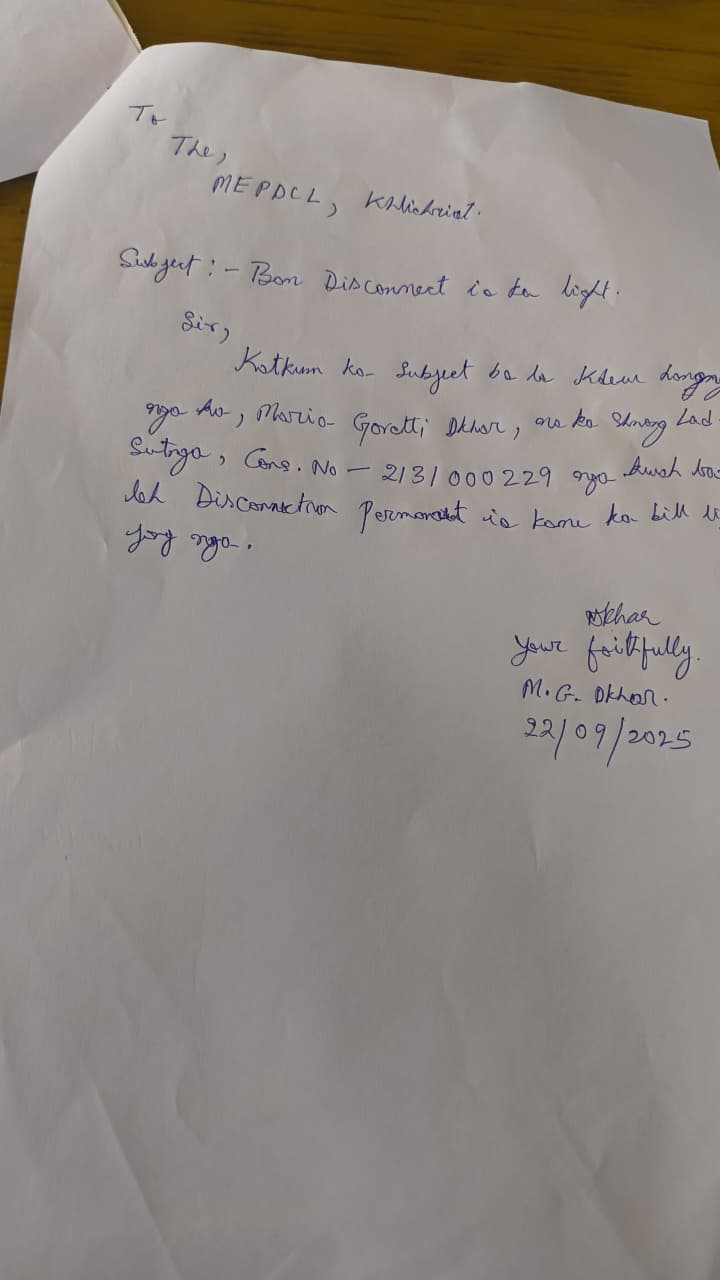 To
The,
MEPDCL, Khliehriat.
Subject :- Ban Disconnect ia ka light.
Sir,
Katkum ka Subject ba la kdew haneng
nga ka, Maria Goretti Dkhar, na ka Shnong Lad
Sutnga, Cons. No - 2131000229 nga kwah ba
leh Disconnection Permanent ia kane ka bill
jong nga.
Dkhar
Your faithfully.
M.G. Dkhar.
22/09/2025